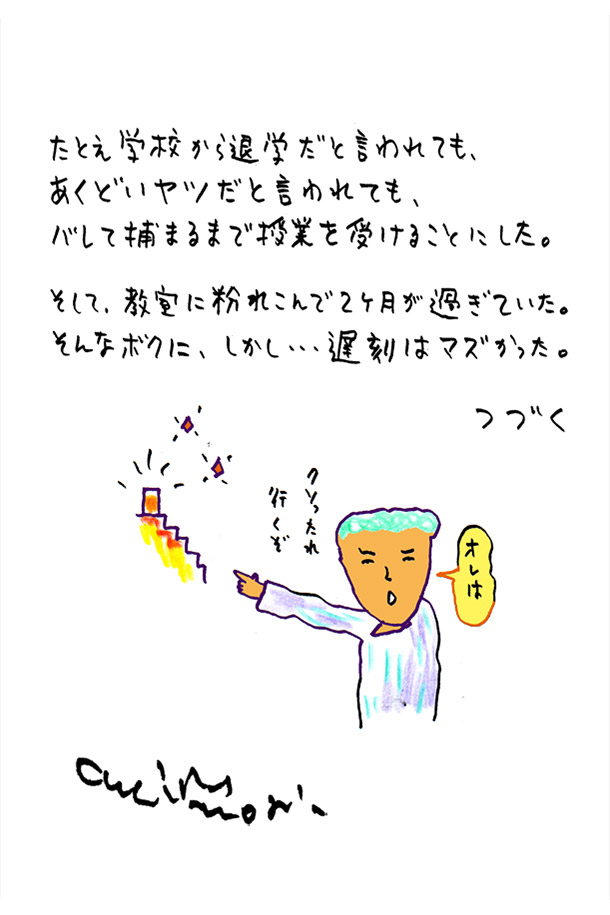 たとえ学校から退学だと言われても、
あくどいヤツだと言われても、
バレて捕まるまで授業を受けることにした。
そして、教室に粉れこんで2ヶ月が過ぎていた。
そんなボクに、しかし…遅刻はマズかった。
つづく
オレは
クソったれ
行くぞ